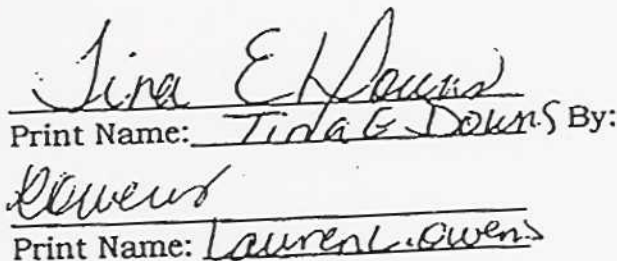 Tina E Downs
Print Name: Tina E Downs By:
LOwens
Print Name: Lauren L. Owens